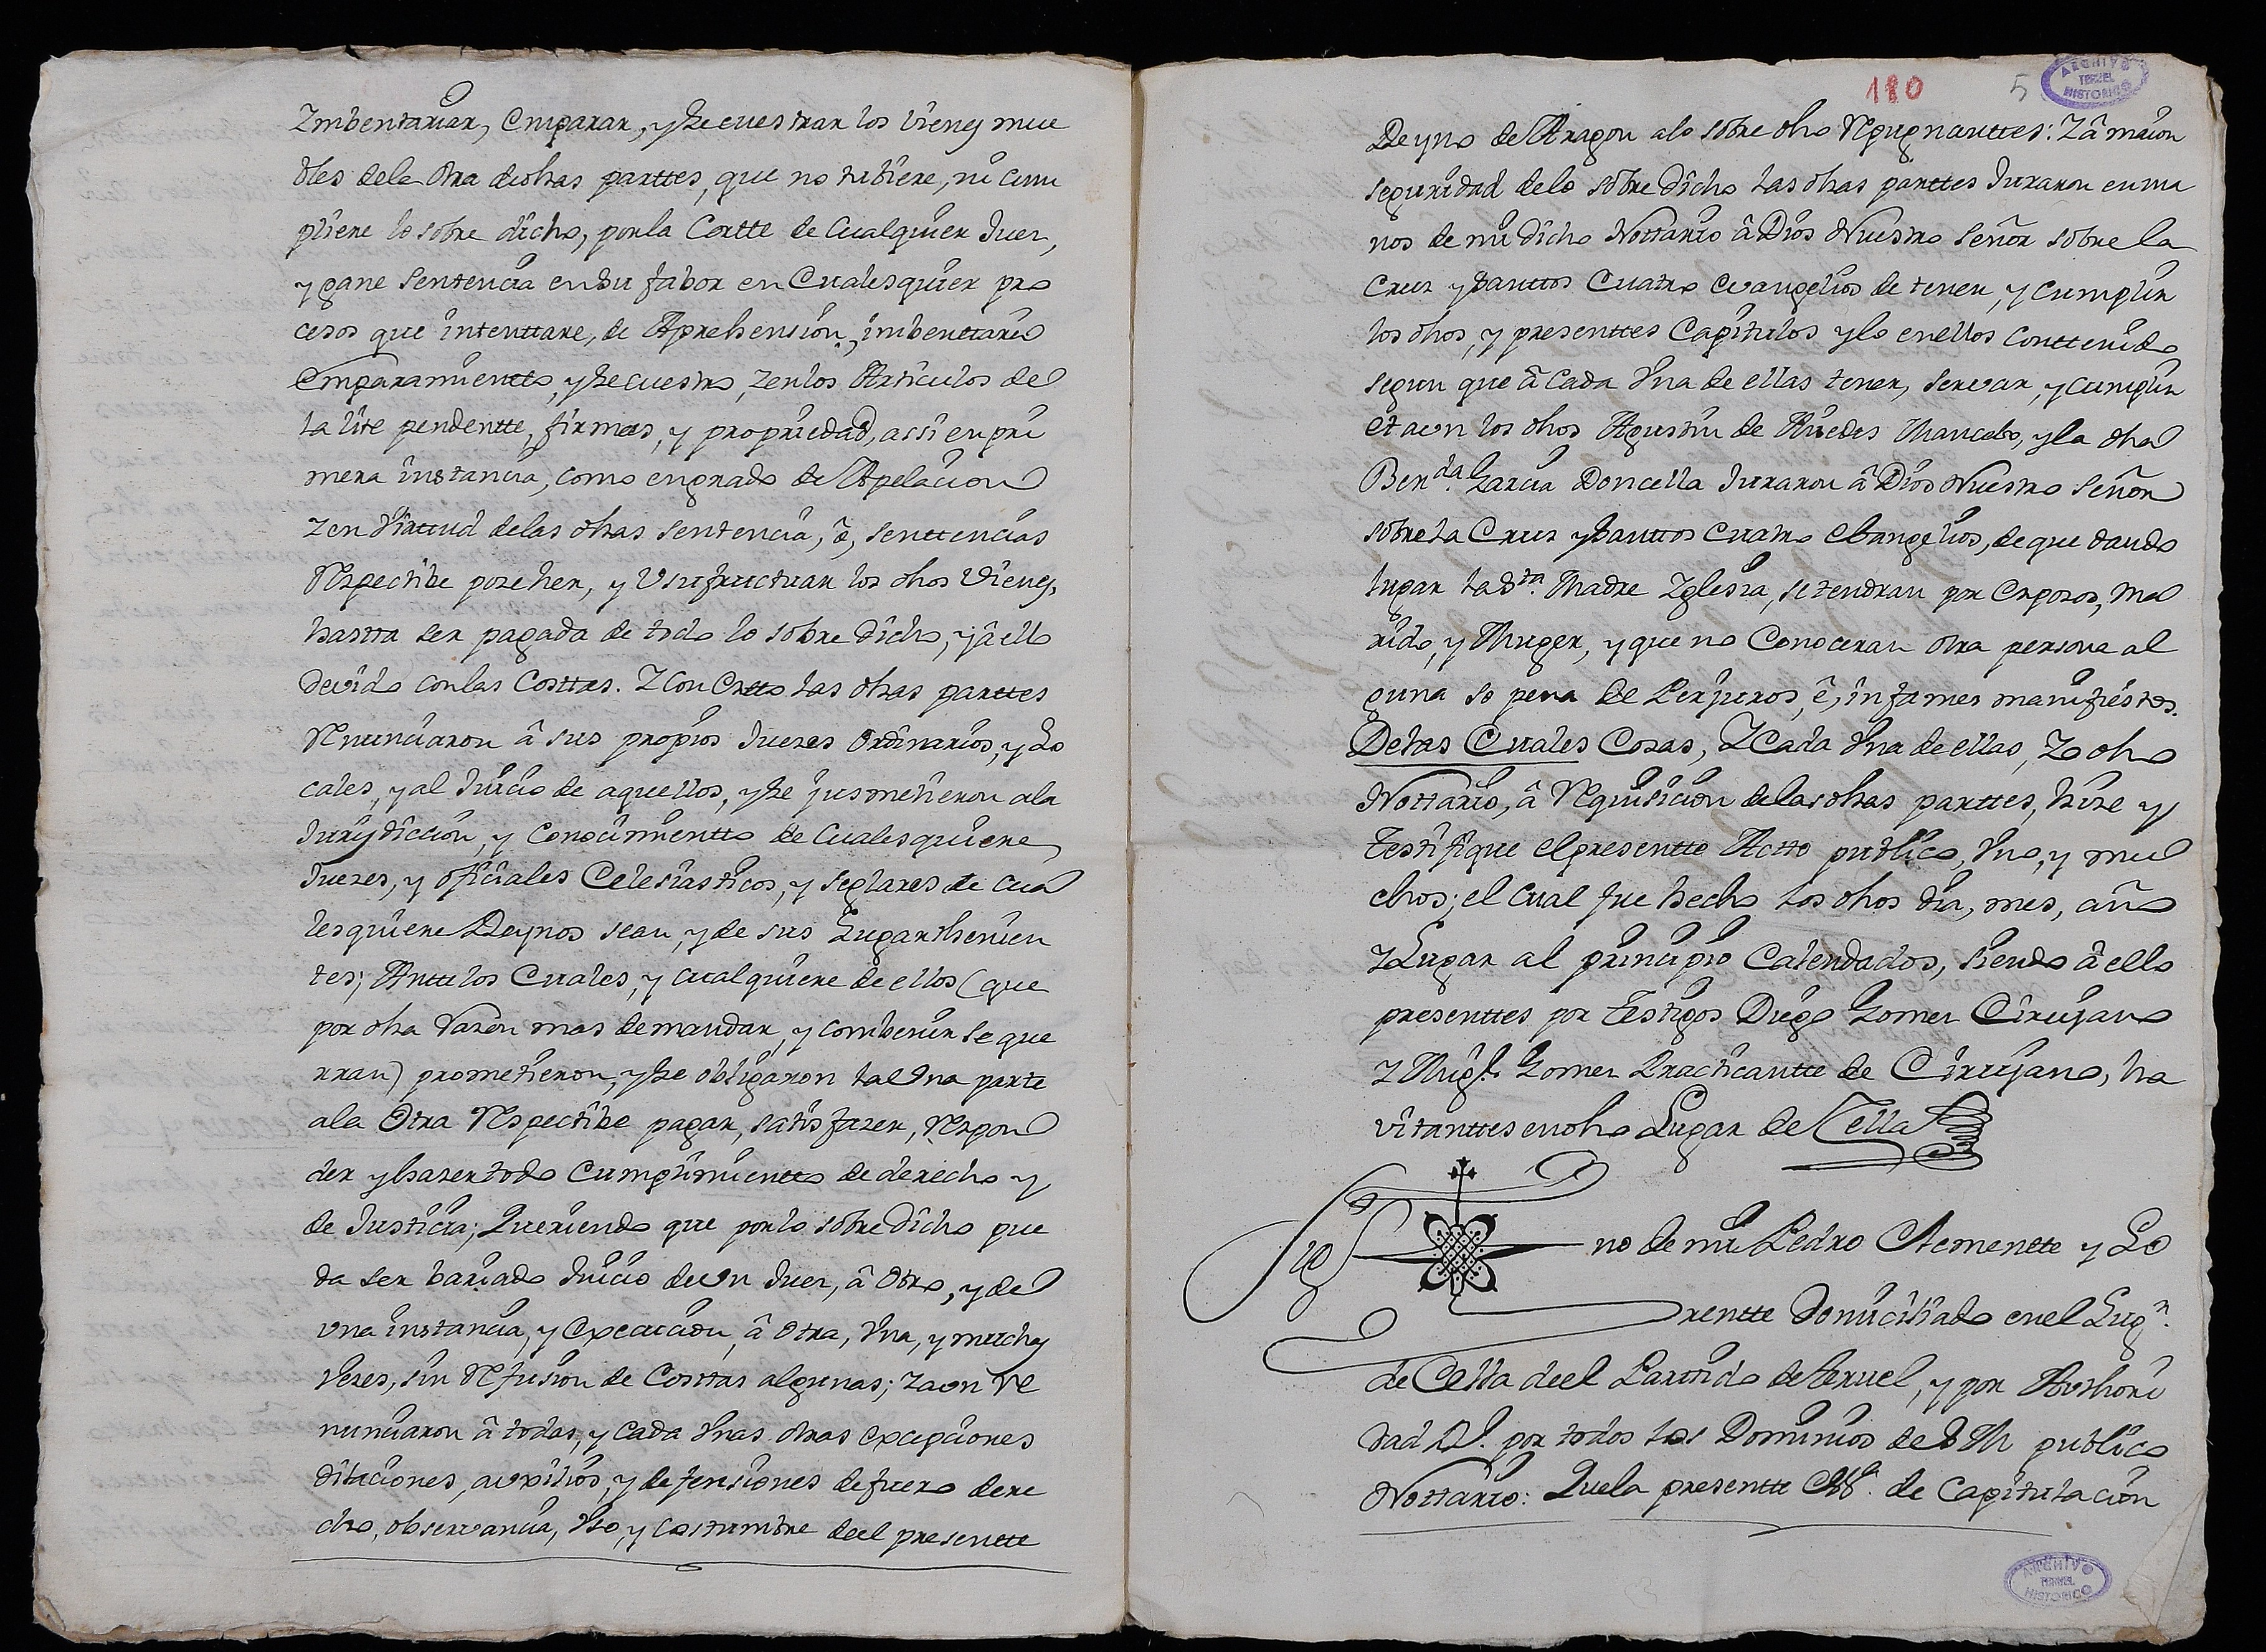 Imbentariar, emparar, y secuestrar los vienes mue
bles dela otra de dhas parttes, que no tubiere, ni cum
pliere lo sobre dicho, por la Cortte de Cualquier Juez,
y gane Sentencia en su fabor en Cualesquier pro
cesos que intenttare, de Aprehension, imbenttario
emparamientto, y secuestro, y en los Articulos de
la lite pendentte, firmas, y propriedad, assi en pri
mera instancia, como en grado de Apelacion
y en Virttud delas dhas sentencia, ò, senttencias
Respectibe poseher, y Usufructuar los dhos Vienes,
hastta ser pagada de todo lo sobre dicho, y à ello
devido con las Costtas. Y con estto las dhas parttes
Renunciaron à sus propios Juezes Ordinarios, y Lo
cales, y al Juicio de aquellos, y se jusmetieron ala
Jurisdiccion, y Conocimientto de Cualesquiere
Juezes, y oficiales Eclesiasticos, y seglares de cua
lesquiere Reynos sean, y de sus Lugarthenien
tes; Antte los Cuales, y cualquiere de ellos (que
por dha Razon mas demandar, y combenir se que
rran) prometieron, y se obligaron la Una parte
ala Otra Respectibe pagar, satisfazer, Respon
der y hazer todo Cumplimientto de derecho y
de Justicia; Queriendo que por lo sobre dicho pue
da ser bariado Juicio de un Juez, â Otro, y de
una instancia, y execucion, â otra, Una, y muchas
Vezes, sin Refusion de Costtas algunas; Y aun re
nunciaron â todas, y cada Unas dhas excepciones
dilaciones, auxilios, y defensiones de fuero dere
cho, observancia, Uso, y costumbre deel presentte
180 5
ARCHIVO HISTORICO TERUEL
Reyno de Aragon alo sobre dho Repugnanttes: Y â maior
seguridad delo sobre dicho las dhas parttes Juraron en ma
nos de mi dicho Nottario â Dios Nuestro Señor sobre la
Cruz y santtos Cuatro evangelios de tener, y cumplir
los dhos, y presenttes Capitulos y lo en ellos conttenido
segun que â Cada Una de ellas tener, servar, y cumplir
Et aun los dhos Agustin de Ruedes Mancebo, y la dha
Ben.da Garcia Doncella Juraron â Dios Nuestro Señor
sobre la Cruz y santtos Cuatro ebangelios, de que dando
lugar la S.ta Madre Yglesia, se tendran por esposos, ma
rido, y Muger, y que no Conoceran otra persona al
guna so pena de Perjuros, ê, infames manifiestos.
Delas Cuales Cosas, Y Cada Una de ellas, Yo dho
Nottario, â Requisicion delas dhas parttes, hize y
Testifique el presentte Actto publico, Uno, y mu
chos; el cual fue hecho los dhos dia, mes, año
y Lugar al principio Calendados, siendo â ello
presenttes por Testigos Diego Gomez Cirujano
y Mig.l Gomez Practicantte de Cirujano, ha
vitanttes en dho Lugar de Cella
Sig no de mi Pedro Clementte y Lo
rentte Domiciliado en el Lug.r
de Cella deel Parttido de Teruel, y por Authori
dad Rl. por todos los Dominios de S M publico
Nottario: Que la presentte de Capitulacion
ARCHIVO HISTORICO TERUEL